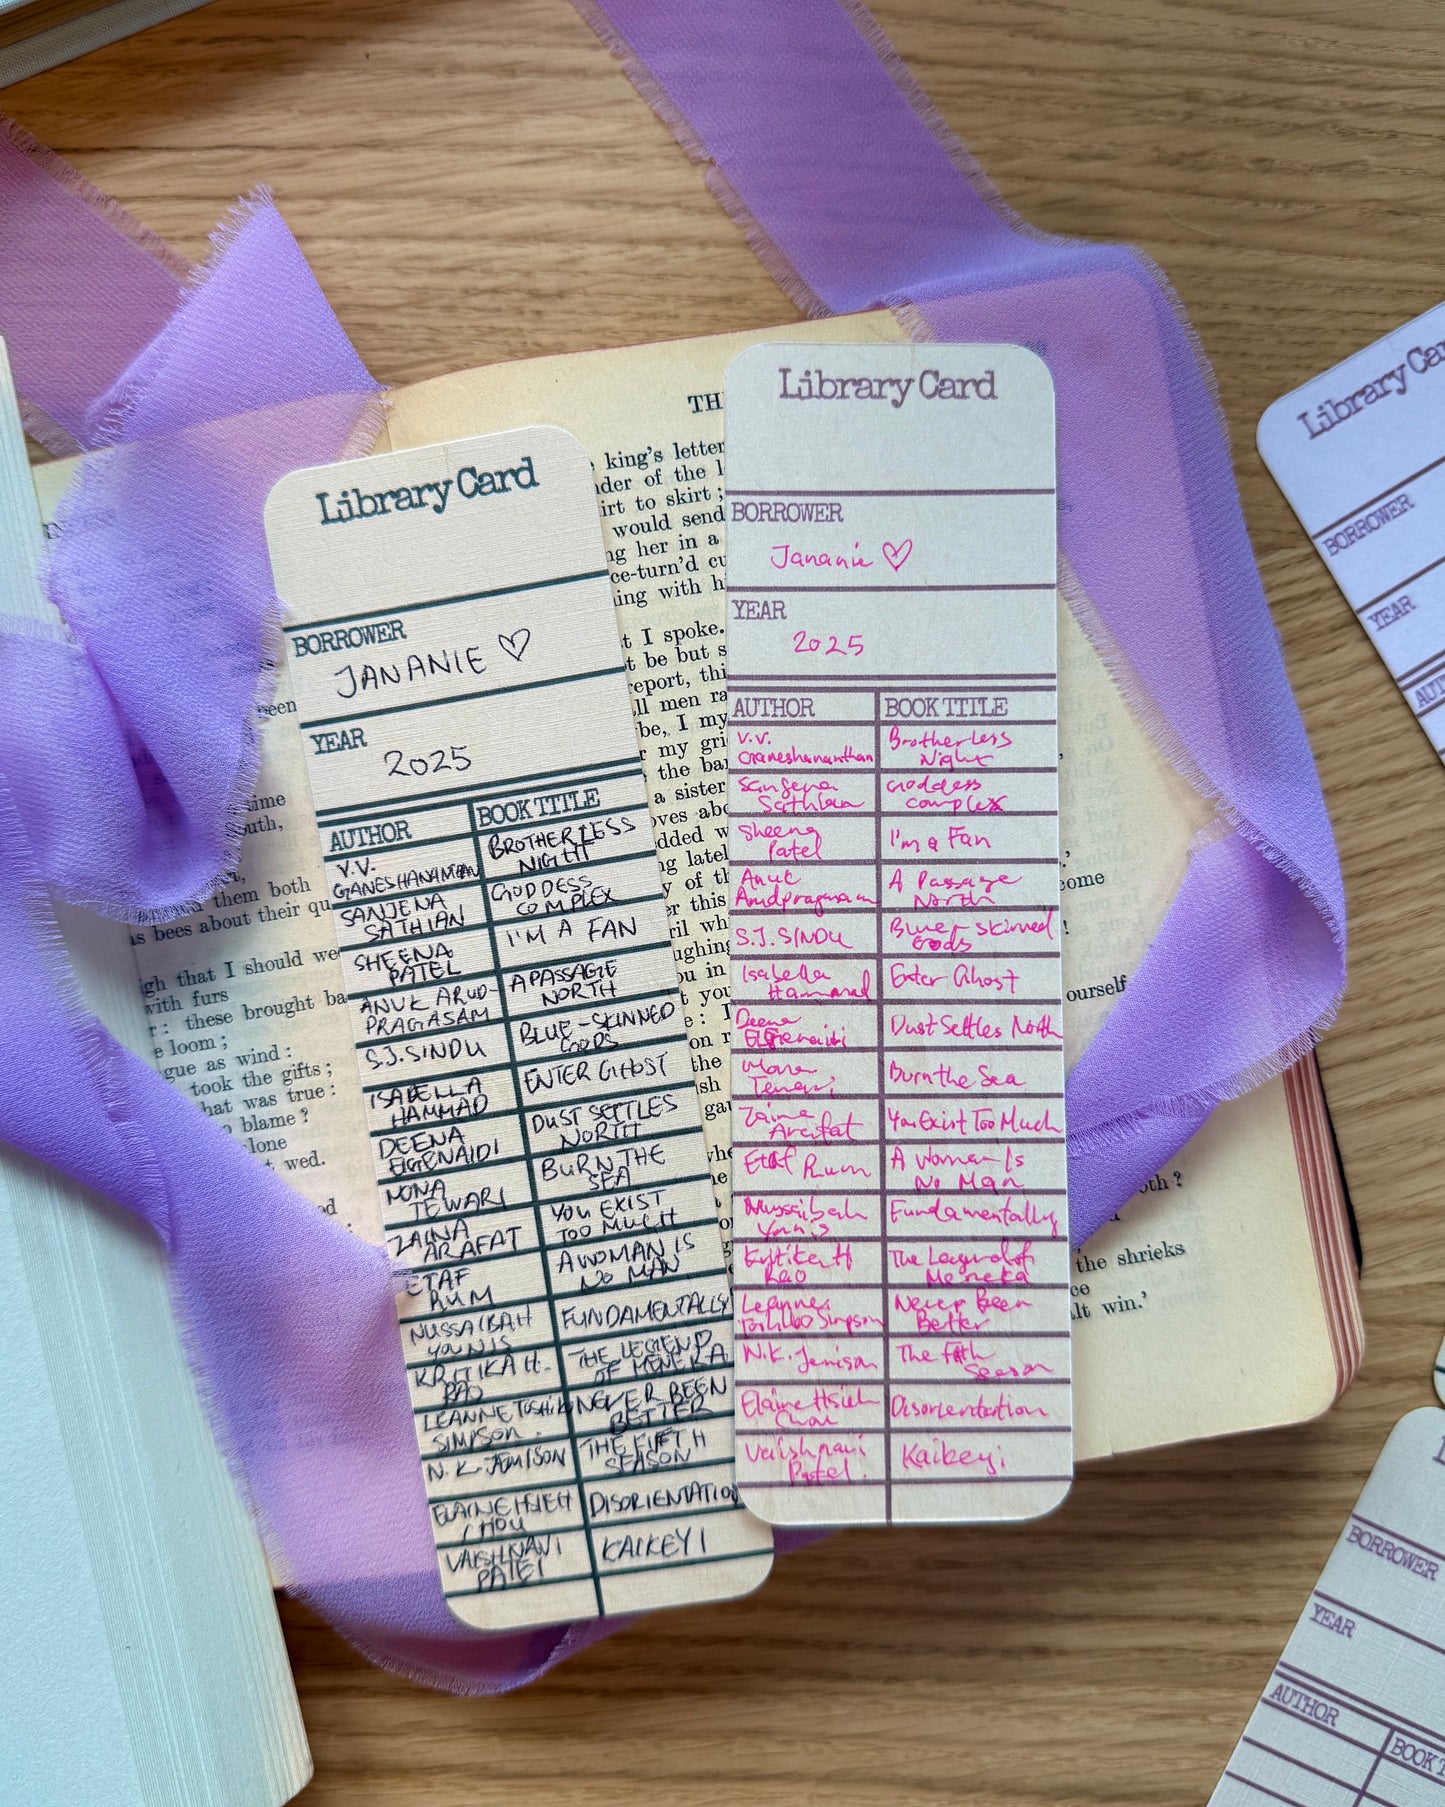 Library Card
BORROWER
JANANIE ♡
YEAR
2025
AUTHOR BOOK TITLE
V.V. GANESHANANTHAN BROTHERLESS NIGHT
SANJENA SATHIAN GODDESS COMPLEX
SHEENA PATEL I'M A FAN
ANUK ARUD-PRAGASAM A PASSAGE NORTH
S.J. SINDU BLUE-SKINNED GODS
ISABELLA HAMMAD ENTER GHOST
DEENA ELGENAIDI DUST SETTLES NORTH
MONA TEWARI BURN THE SEA
ZAINA ARAFAT YOU EXIST TOO MUCH
ETAF RUM A WOMAN IS NO MAN
NUSSAIBAH YOUNIS FUNDAMENTALLY
KRITIKA H. RAO THE LEGEND OF MENEKA
LEANNE TOSHIKO SIMPSON NEVER BEEN BETTER
N.K. JEMISON THE FIFTH SEASON
ELAINE HSIEH CHOU DISORIENTATION
VAISHNAVI PATEL KAIKEYI
Library Card
BORROWER
Jananie ♡
YEAR
2025
AUTHOR BOOK TITLE
V.V. Ganeshananthan Brotherless Night
Sanjena Sathian Goddess Complex
Sheena Patel I'm a Fan
Anuk Arudpragasam A Passage North
S.J. SINDU Blue-Skinned Gods
Isabella Hammad Enter Ghost
Deena Elgenaidi Dust Settles North
Mona Tewari Burn the Sea
Zaina Arafat You Exist Too Much
Etaf Rum A Woman Is No Man
Nussaibah Younis Fundamentally
Kritika H Rao The Legend of Meneka
Leanne Toshiko Simpson Never Been Better
N.K. Jemison The Fifth Season
Elaine Hsieh Chou Disorientation
Vaishnavi Patel Kaikeyi
king's letter
would send
her in a
ce-turn'd
ing with
I spoke.
be but
report,
ll men
be, I my
my
the
a sister
time
them both
as bees about their
gh that I should
with furs
these brought
loom;
gue as wind:
took the gifts;
hat was true:
blame?
wed.
ourself
the shrieks
win.'
Library
BORROWER
YEAR
BORROWER
YEAR
AUTHOR
BOOK